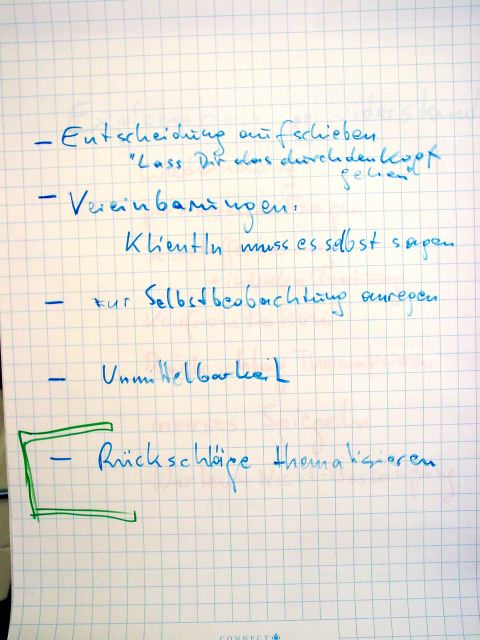 - Entscheidung aufschieben
"Lass Dir das durch den Kopf
gehen"
- Vereinbarungen:
KlientIn muss es selbst sagen
- zur Selbstbeobachtung anregen
- Unmittelbarkeit
- Rückschläge thematisieren
CONNECT